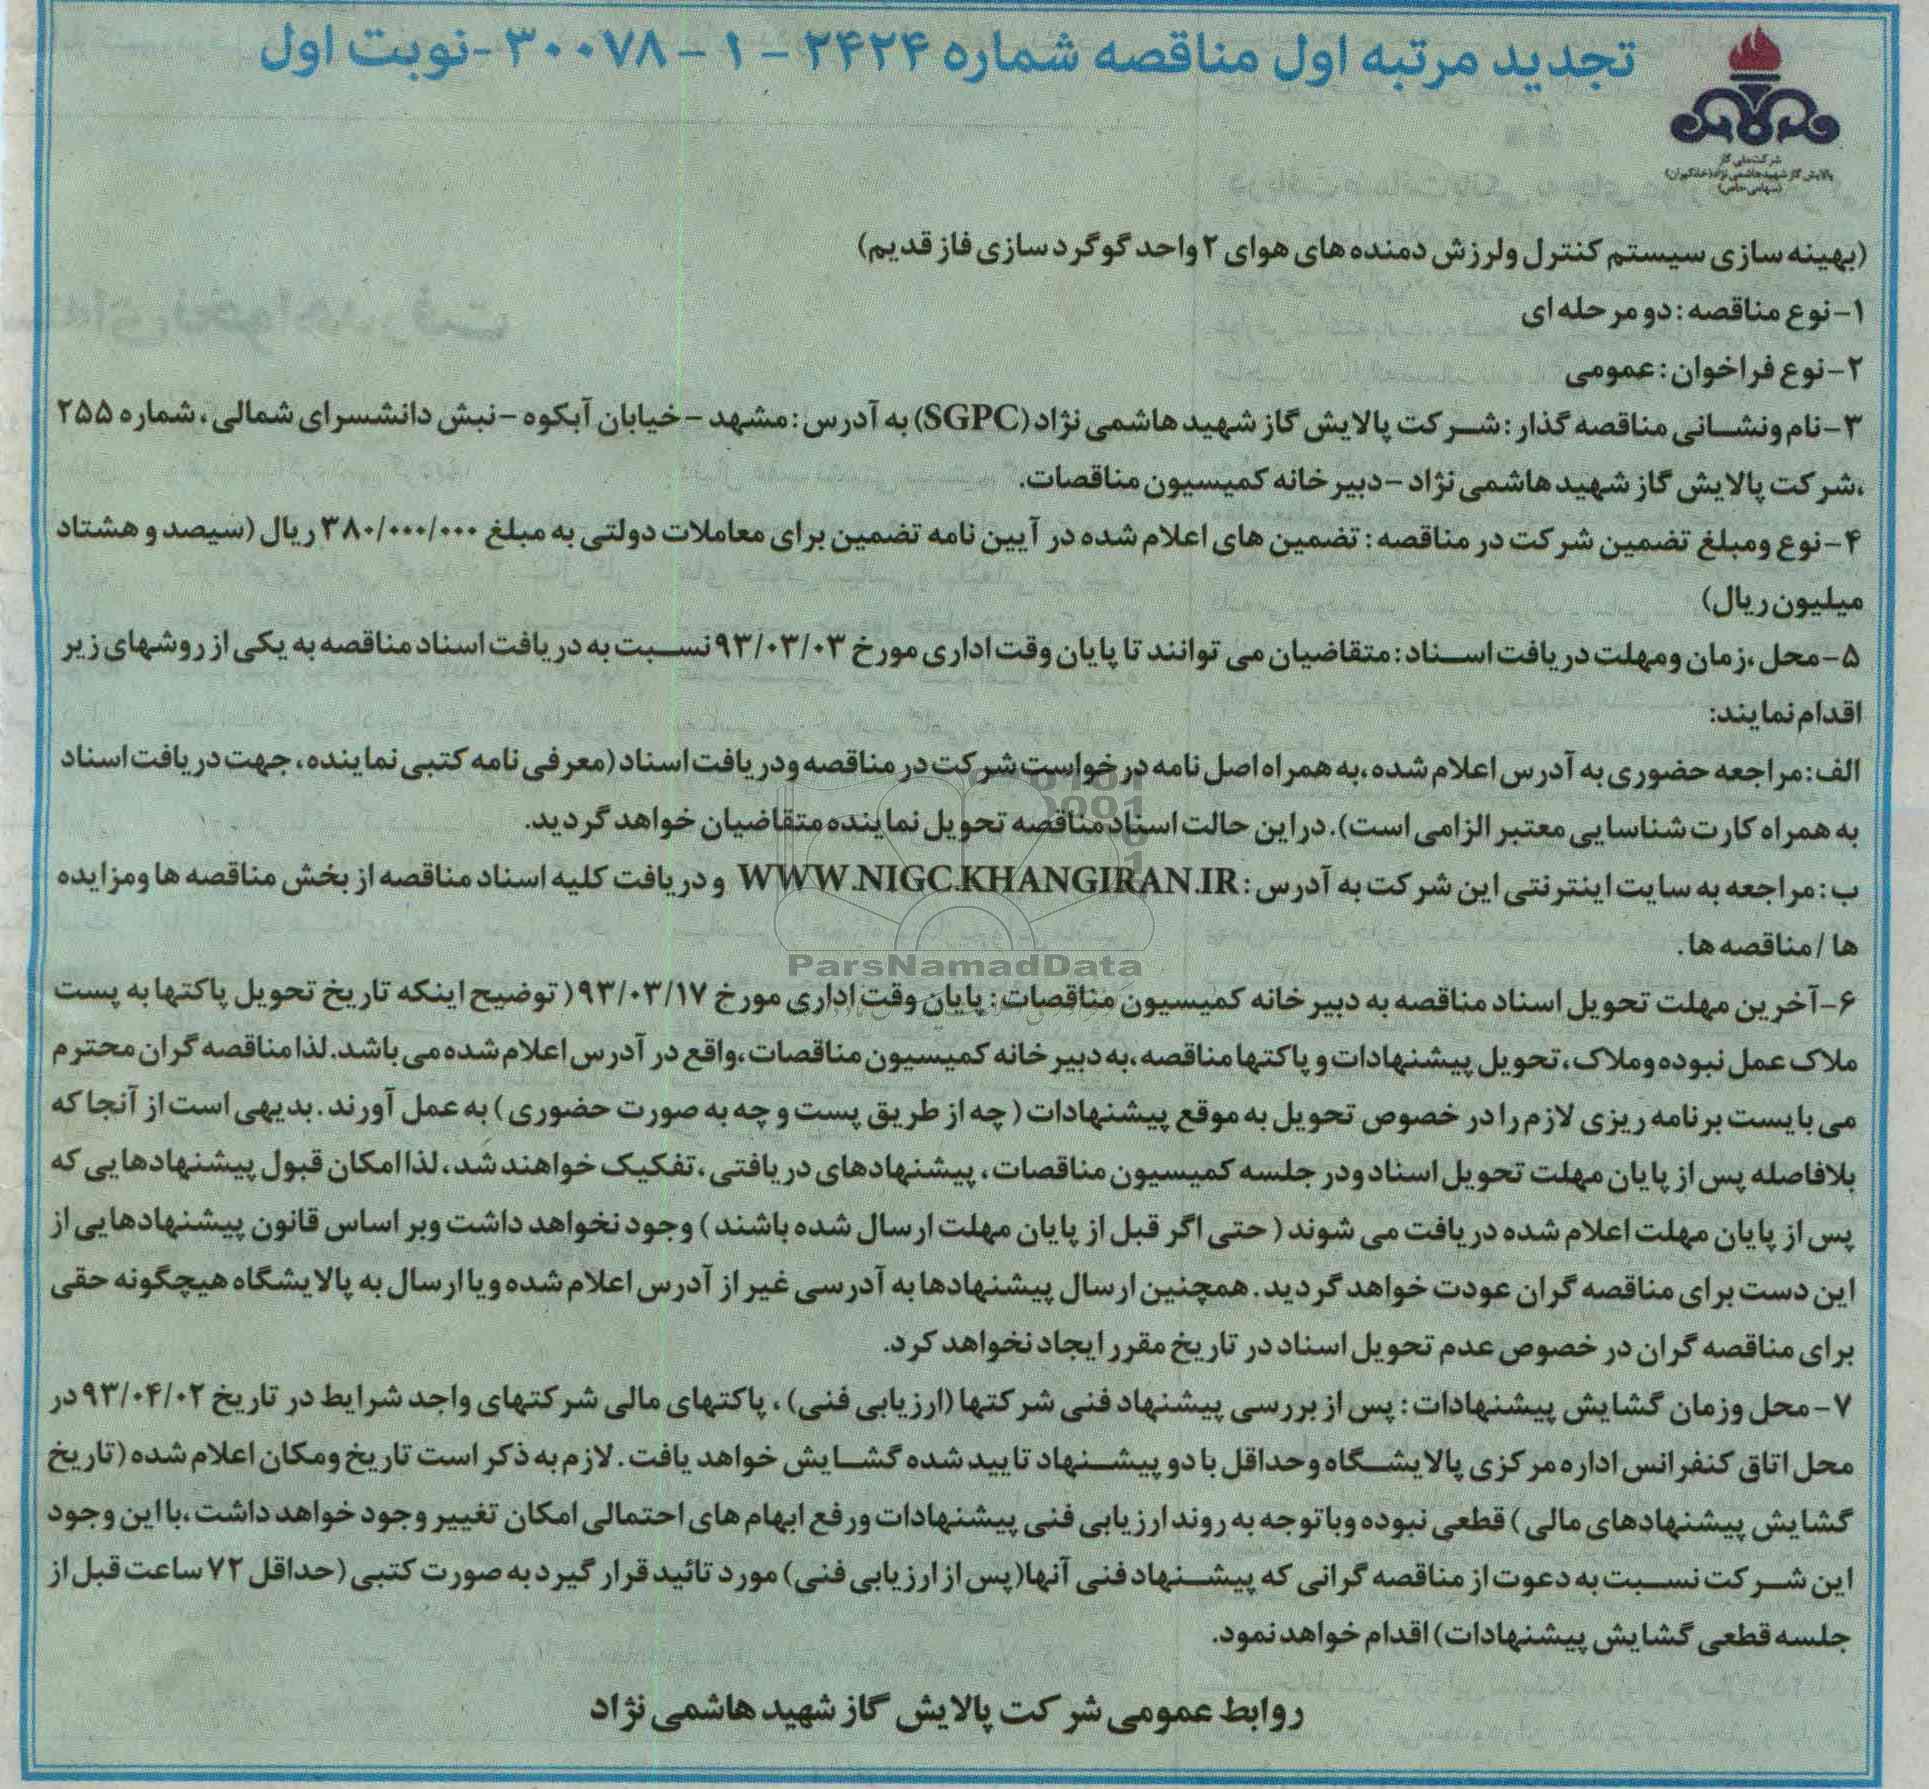 تجدید مرتبه اول مناقصه شماره ۲۴۲۴ - ۱ - ۳۰۰۷۸ -نوبت اول
شرکت ملی گاز
پالایش گاز شهید هاشمی نژاد(خانگیران)
(سهامی خاص)
(بهینه سازی سیستم کنترل ولرزش دمنده های هوای ۲ واحد گوگرد سازی فاز قدیم)
۱-نوع مناقصه : دو مرحله ای
۲-نوع فراخوان : عمومی
۳-نام ونشانی مناقصه گذار : شرکت پالایش گاز شهید هاشمی نژاد (SGPC) به آدرس : مشهد -خیابان آبکوه -نبش دانشسرای شمالی ، شماره ۲۵۵
،شرکت پالایش گاز شهید هاشمی نژاد -دبیرخانه کمیسیون مناقصات.
۴-نوع ومبلغ تضمین شرکت در مناقصه : تضمین های اعلام شده در آیین نامه تضمین برای معاملات دولتی به مبلغ ۳۸۰/۰۰۰/۰۰۰ ریال (سیصد و هشتاد
میلیون ریال)
۵-محل ،زمان ومهلت دریافت اسناد : متقاضیان می توانند تا پایان وقت اداری مورخ ۹۳/۰۳/۰۳ نسبت به دریافت اسناد مناقصه به یکی از روشهای زیر
اقدام نمایند:
الف: مراجعه حضوری به آدرس اعلام شده ،به همراه اصل نامه درخواست شرکت در مناقصه ودریافت اسناد (معرفی نامه کتبی نماینده ، جهت دریافت اسناد
به همراه کارت شناسایی معتبر الزامی است). دراین حالت اسناد مناقصه تحویل نماینده متقاضیان خواهد گردید.
ب: مراجعه به سایت اینترنتی این شرکت به آدرس : WWW.NIGC.KHANGIRAN.IR و دریافت کلیه اسناد مناقصه از بخش مناقصه ها ومزایده
ها /مناقصه ها .
ParsNamadData
۶-آخرین مهلت تحویل اسناد مناقصه به دبیرخانه کمیسیون مناقصات: پایان وقت اداری مورخ ۹۳/۰۳/۱۷ ( توضیح اینکه تاریخ تحویل پاکتها به پست
ملاک عمل نبوده وملاک ، تحویل پیشنهادات و پاکتها مناقصه ،به دبیرخانه کمیسیون مناقصات ،واقع در آدرس اعلام شده می باشد. لذا مناقصه گران محترم
می بایست برنامه ریزی لازم را در خصوص تحویل به موقع پیشنهادات ( چه از طریق پست و چه به صورت حضوری ) به عمل آورند . بدیهی است از آنجا که
بلافاصله پس از پایان مهلت تحویل اسناد ودر جلسه کمیسیون مناقصات ، پیشنهادهای دریافتی ، تفکیک خواهند شد ، لذا امکان قبول پیشنهادهایی که
پس از پایان مهلت اعلام شده دریافت می شوند ( حتی اگر قبل از پایان مهلت ارسال شده باشند ) وجود نخواهد داشت وبر اساس قانون پیشنهادهایی از
این دست برای مناقصه گران عودت خواهد گردید . همچنین ارسال پیشنهادها به آدرسی غیر از آدرس اعلام شده ویا ارسال به پالایشگاه هیچگونه حقی
برای مناقصه گران در خصوص عدم تحویل اسناد در تاریخ مقرر ایجاد نخواهد کرد.
۷-محل وزمان گشایش پیشنهادات : پس از بررسی پیشنهاد فنی شرکتها (ارزیابی فنی) ، پاکتهای مالی شرکتهای واجد شرایط در تاریخ ۹۳/۰۴/۰۲ در
محل اتاق کنفرانس اداره مرکزی پالایشگاه وحداقل با دو پیشنهاد تایید شده گشایش خواهد یافت . لازم به ذکر است تاریخ ومکان اعلام شده (تاریخ
گشایش پیشنهادهای مالی ) قطعی نبوده وباتوجه به روند ارزیابی فنی پیشنهادات ورفع ابهام های احتمالی امکان تغییر وجود خواهد داشت ،با این وجود
این شرکت نسبت به دعوت از مناقصه گرانی که پیشنهاد فنی آنها(پس از ارزیابی فنی) مورد تائید قرار گیرد به صورت کتبی (حداقل ۷۲ ساعت قبل از
جلسه قطعی گشایش پیشنهادات) اقدام خواهد نمود.
روابط عمومی شرکت پالایش گاز شهید هاشمی نژاد